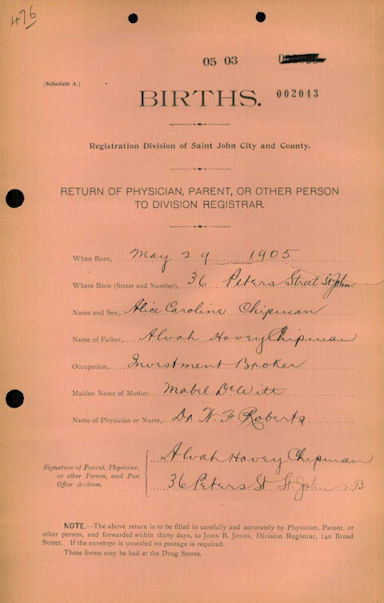 476
05 03
[Schedule A.]
BIRTHS. 002043
Registration Division of Saint John City and County.
RETURN OF PHYSICIAN, PARENT, OR OTHER PERSON
TO DIVISION REGISTRAR.
When Born, May 29 1905
Where Born (Street and Number), 36 Peters Street St John
Name and Sex, Alice Caroline Chipman
Name of Father, Alvah Hovey Chipman
Occupation, Investment Broker
Maiden Name of Mother, Mabel DeWitt
Name of Physician or Nurse, Dr W F Roberts
Signature of Parent, Physician,
or other Person, and Post
Office Address.
Alvah Hovey Chipman
36 Peters St St John NB
NOTE.—The above return is to be filled in carefully and accurately by Physician, Parent, or
other person, and forwarded within thirty days, to JOHN B. JONES, Division Registrar, 140 Broad
Street. If the envelope is unsealed no postage is required.
These forms may be had at the Drug Stores.